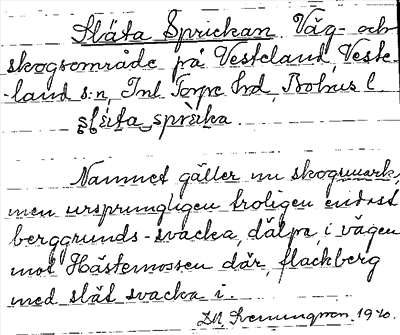 Släta Sprickan. Väg- och
skogsområde på Vesteland, Veste-
-land s:n, Inl. Torpe hd, Bohus l.
slæ̀ta sprìka
Namnet gäller nu skogsmark,
men ursprungligen troligen endast
berggrunds-svacka, dälpa, i vägen
mot Hästemossen där, flackberg
med slät svacka i.
Sveningson. 1970.